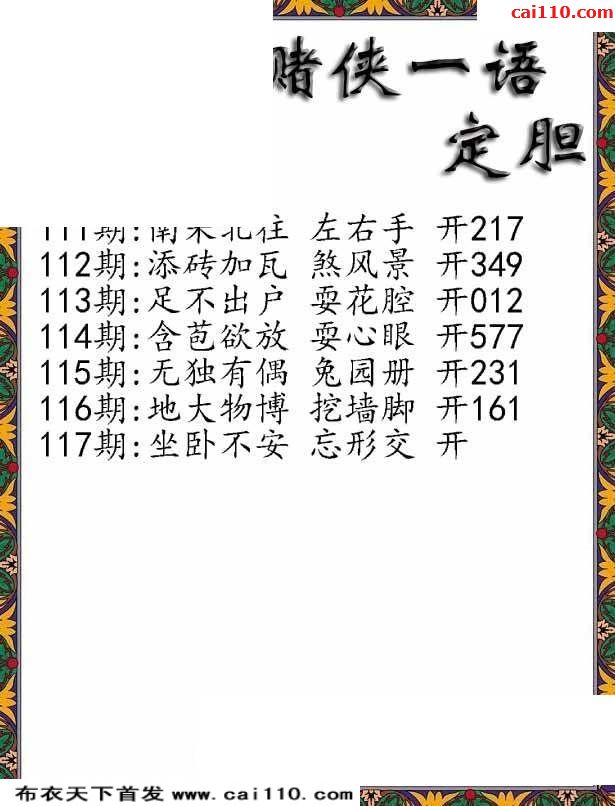 cai110.com
赌侠一语
定胆
111期:南来北往 左右手 开217
112期:添砖加瓦 煞风景 开349
113期:足不出户 耍花腔 开012
114期:含苞欲放 耍心眼 开577
115期:无独有偶 兔园册 开231
116期:地大物博 挖墙脚 开161
117期:坐卧不安 忘形交 开
布衣天下首发 www.cai110.com